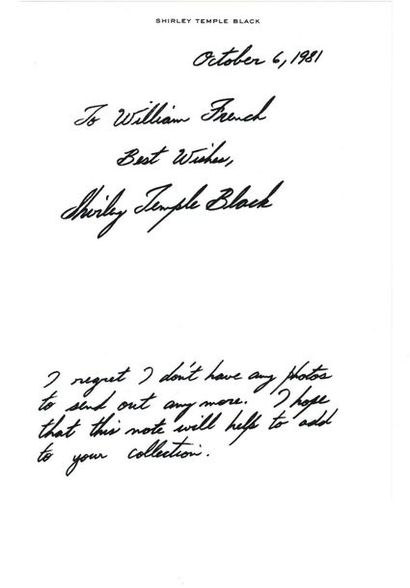 SHIRLEY TEMPLE BLACK
October 6, 1981
To William French
Best Wishes,
Shirley Temple Black
I regret I don't have any photos
to send out any more. I hope
that this note will help to add
to your collection.